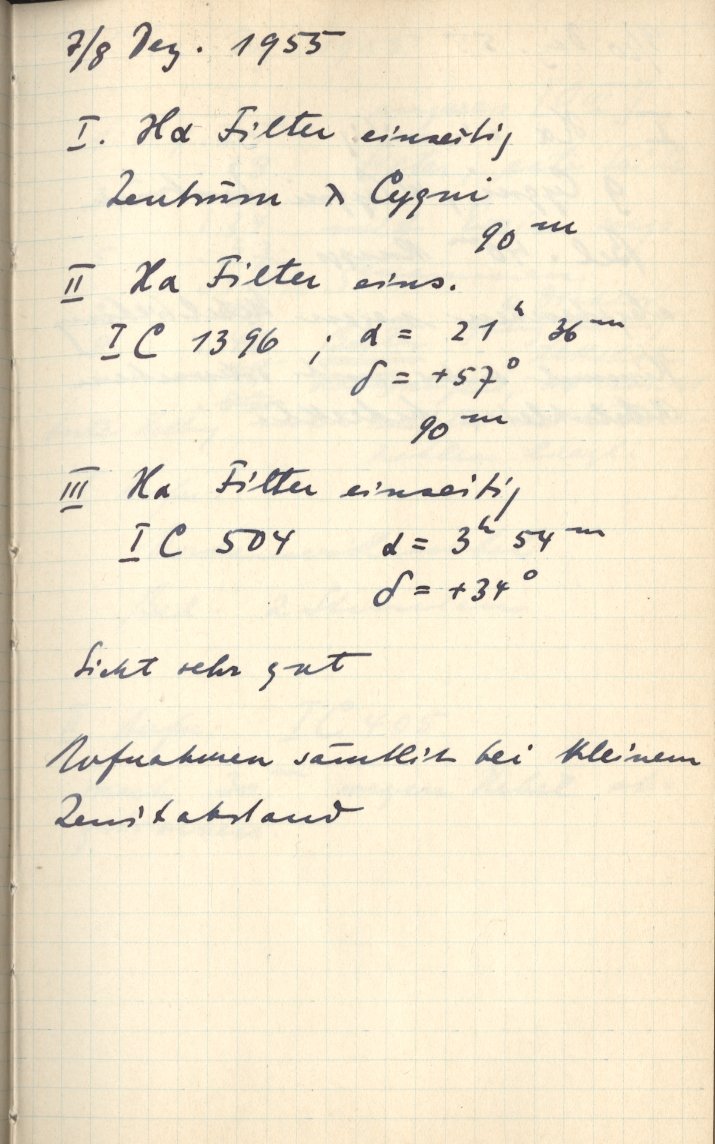 7/8 Dez. 1955
I. Hα Filter einseitig
Zentrum λ Cygni
90 m
II Hα Filter eins.
IC 1396 ; α = 21h 36m
δ = +57°
90 m
III Hα Filter einseitig
IC 504 α = 3h 54m
δ = +34°
Sicht sehr gut
Aufnahmen sämtlich bei kleinem
Zenitabstand